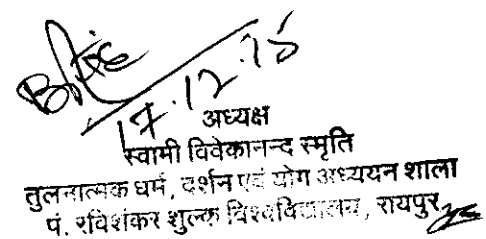 17.12.18
अध्यक्ष
स्वामी विवेकानन्द स्मृति
तुलनात्मक धर्म, दर्शन एवं योग अध्ययन शाला
पं. रविशंकर शुल्क विश्वविद्यालय, रायपुर